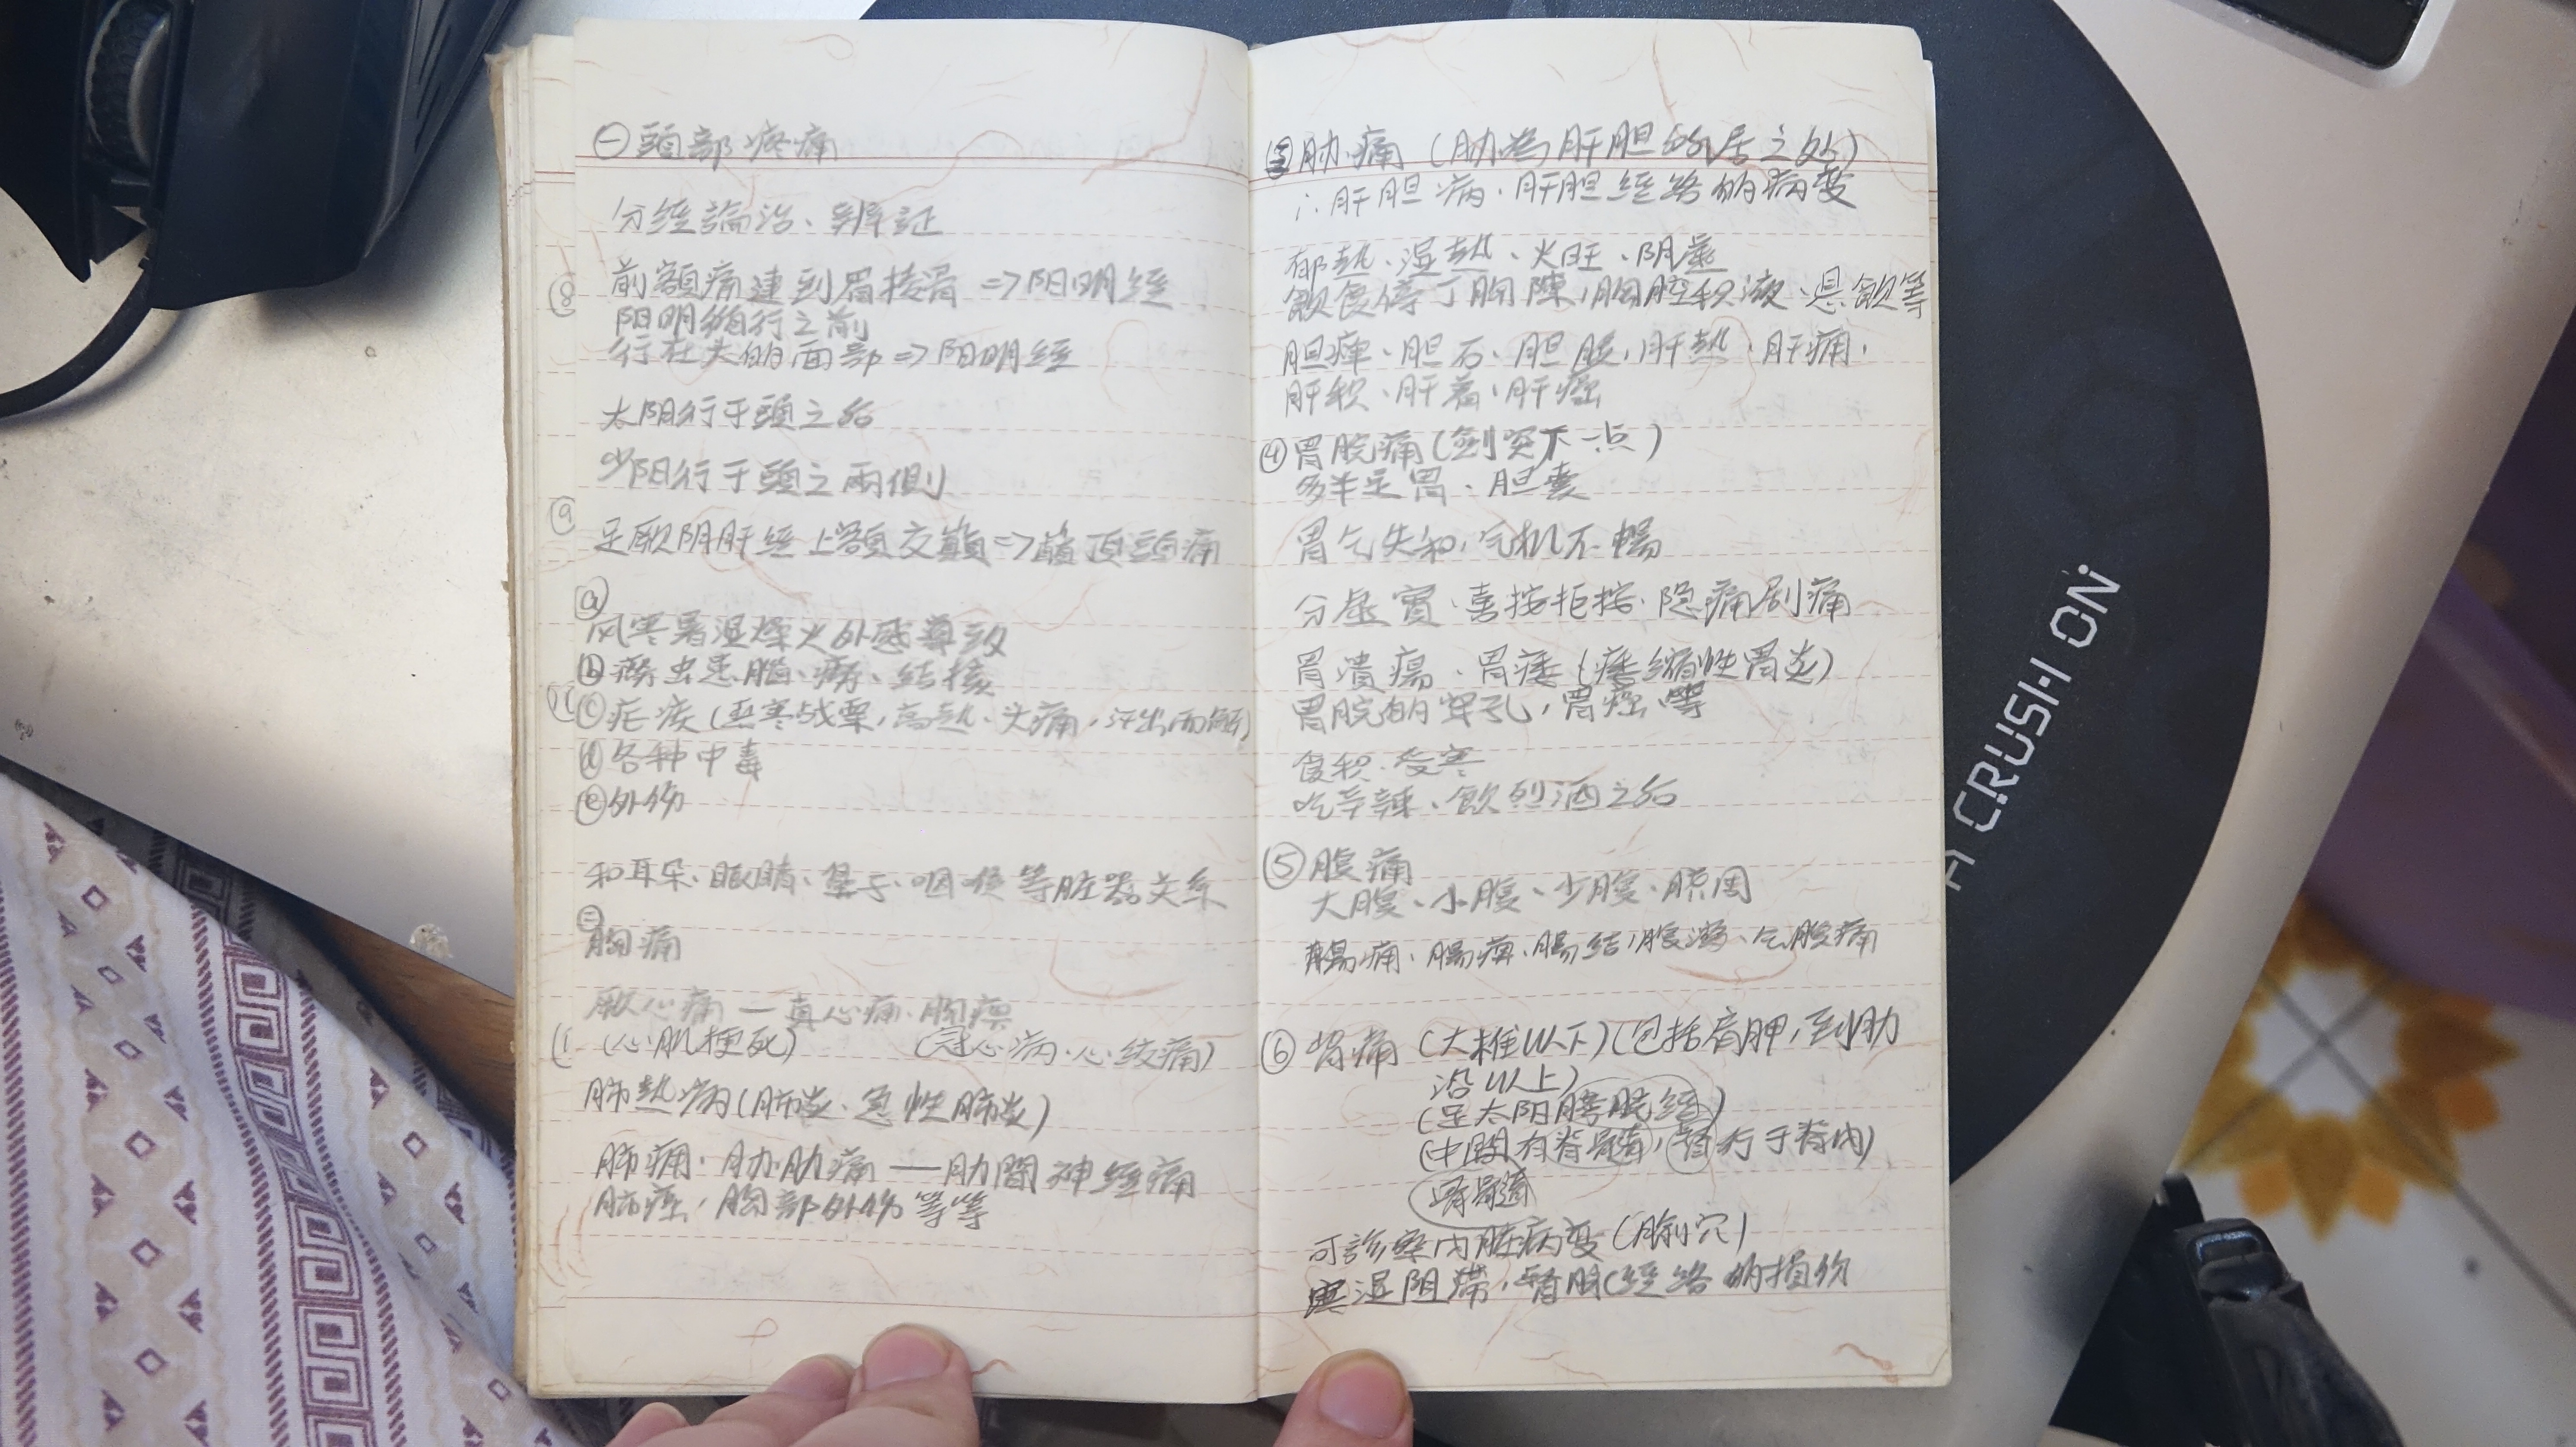 ㊀頭部疼痛
分经論治、辨証
前額痛連到眉棱骨 => 阳明经
阳明经行之前
行在头的面部 => 阳明经
太阳行于頭之后
少阳行于頭之兩側
足厥阴肝经上額交巔 => 巔頂頭痛
ⓐ
风寒暑湿燥火外感導致
ⓑ痨虫患腦、痨、结核
ⓒ疟疾(恶寒战栗,高熱、头痛,汗出而解)
ⓓ各种中毒
ⓔ外伤
和耳朵、眼睛、鼻子、咽喉等脏器关系
㊁
胸痛
厥心痛 — 真心痛、胸痹
(心肌梗死) (冠心病、心绞痛)
肺热病(肺炎、急性肺炎)
肺痛、胁肋痛 — 肋間神经痛
肺癌、胸部外伤等等
㊂胁痛(胁为肝胆的居之处)
∴肝胆病、肝胆经络的病变
郁熱、湿熱、火旺、阴虚
飲食停于胸隙,胸腔积液、悬飲等
胆瘅、胆石、胆胀,肝熱、肝痛,
肝积、肝着、肝癌
④胃脘痛(剑突下一点)
多半是胃、胆囊
胃气失和,气机不暢
分虛實、喜按拒按、隐痛剧痛
胃潰瘍、胃痿(痿缩性胃炎)
胃脘的穿孔,胃癌等
食积、受寒
吃辛辣、飲烈酒之后
⑤腹痛
大腹、小腹、少腹、脐周
腸痛、腸痹、腸结,腹泻、气腹痛
⑥背痛(大椎以下)(包括肩胛,到肋
沿以上)
(足太阳膀胱经)
(中間有脊骨髓,督行于脊内)
脊骨髓
可診察内脏病变(腧穴)
寒湿阻滞,督脉(经络的损伤
A CRUSH ON